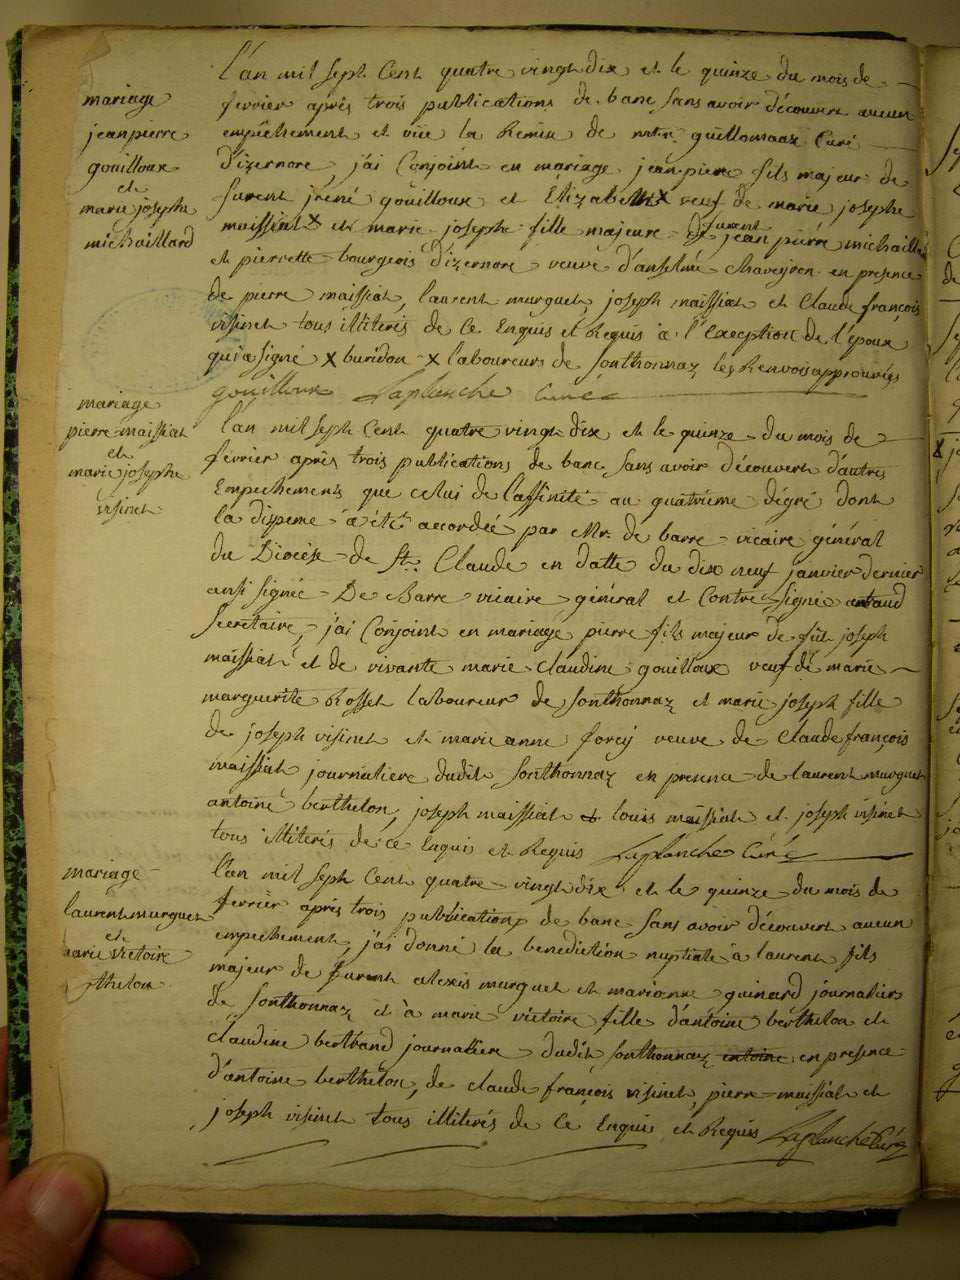 mariage
jean pierre
gouilloux
et
marie josephe
michaillard
l'an mil sept cent quatre vingt dix et le quinze du mois de
fevrier après trois publications de banc sans avoir découvert aucun
empêchement et vüe la Remise de mtre guillomaax Curé
d'izernore, j'ai Conjoint en mariage jean pierre fils majeur de
furent jréné gouilloux et Elizabeth x veuf de marie josephe
maissiat x et marie josephe fille majeure de furent jean pierre michaillard
et pierrette bourgeois d'izernore veuve d'anselme chaveyron en presence
de pierre maissiat, laurent murguet, joseph maissiat et Claude françois
visinet tous illiterés de ce Enquis et Requis à l'exception de l'époux
qui a signé x buridon x laboureurs de sonthonnaz les Renvois approuvés
gouilloux Laplanche Curé
mariage
pierre maissiat
et
marie josephe
visinet
l'an mil sept cent quatre vingt dix et le quinze du mois de
fevrier après trois publications de banc sans avoir découvert d'autres
Empechements que celui de l'affinité au quatrième dégré dont
la dispense a été accordée par Mr. de barre vicaire général
du Diocèse de St. Claude en datte du dix neuf janvier dernier
ainsi signée De Barre vicaire général et Contre signée
Secretaire, j'ai Conjoint en mariage pierre fils majeur de fût joseph
maissiat et de vivante marie claudine gouilloux veuf de marie
marguerite Rosset laboureur de sonthonnaz et marie joseph fille
de joseph visinet et marie anne forey veuve de claude françois
maissiat journaliere dudit sonthonnaz en presence de laurent murguet
antoine berthelon, joseph maissiat louis maissiat et joseph visinet
tous illiterés de ce Enquis et Requis Laplanche Curé
mariage
laurent murguet
et
marie victoire
berthelon
l'an mil sept cent quatre vingt dix et le quinze du mois de
fevrier après trois publications de banc sans avoir découvert aucun
empechement, j'ai donné la benediction nuptiale à laurent fils
majeur de furent alexis murguet et marianne guinard journalier
de sonthonnaz et à marie victoire fille d'antoine berthelon et
claudine berthand journaliere dudit sonthonnaz antoine en presence
d'antoine berthelon, de claude françois visinet, pierre maissiat et
joseph visinet tous illiterés de ce Enquis et Requis Laplanche Curé